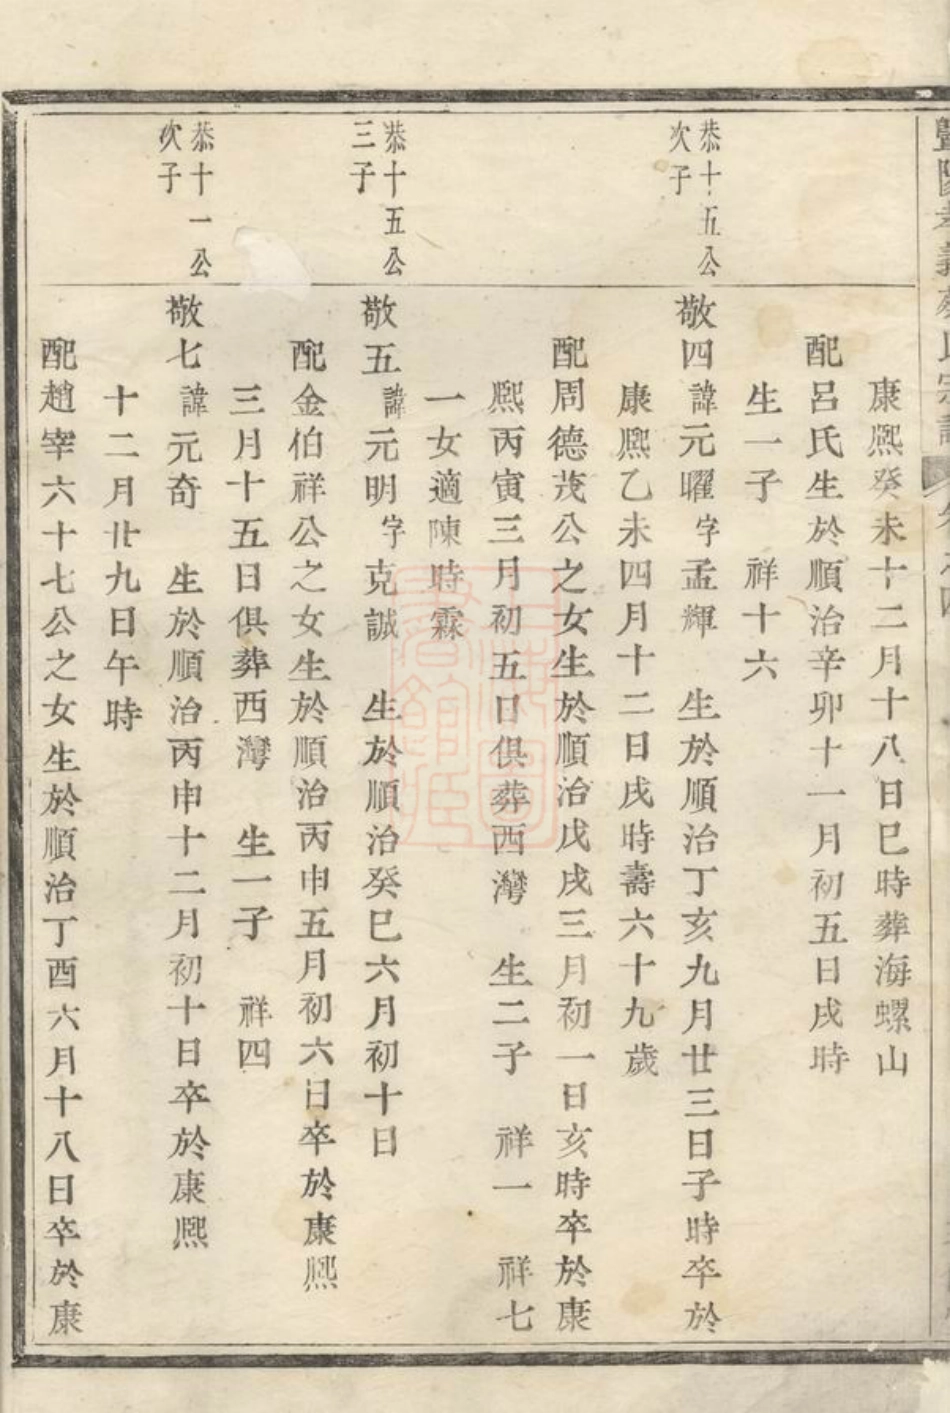 康熙癸未十二月十八日巳時葬海螺山
配呂氏生於順治辛卯十一月初五日戌時
生一子 祥十六
恭十五公
次子
敬四諱元曜字孟輝 生於順治丁亥九月廿三日子時卒於
康熙乙未四月十二日戌時壽六十九歲
配周德茂公之女生於順治戊戌三月初一日亥時卒於康
熙丙寅三月初五日俱葬西灣 生二子 祥一 祥七
一女適陳時霖
恭十五公
三子
敬五諱元明字克誠 生於順治癸巳六月初十日
配金伯祥公之女生於順治丙申五月初六日卒於康熙
三月十五日俱葬西灣 生一子 祥四
恭十一公
次子
敬七諱元奇 生於順治丙申十二月初十日卒於康熙
十二月廿九日午時
配趙宰六十七公之女生於順治丁酉六月十八日卒於康